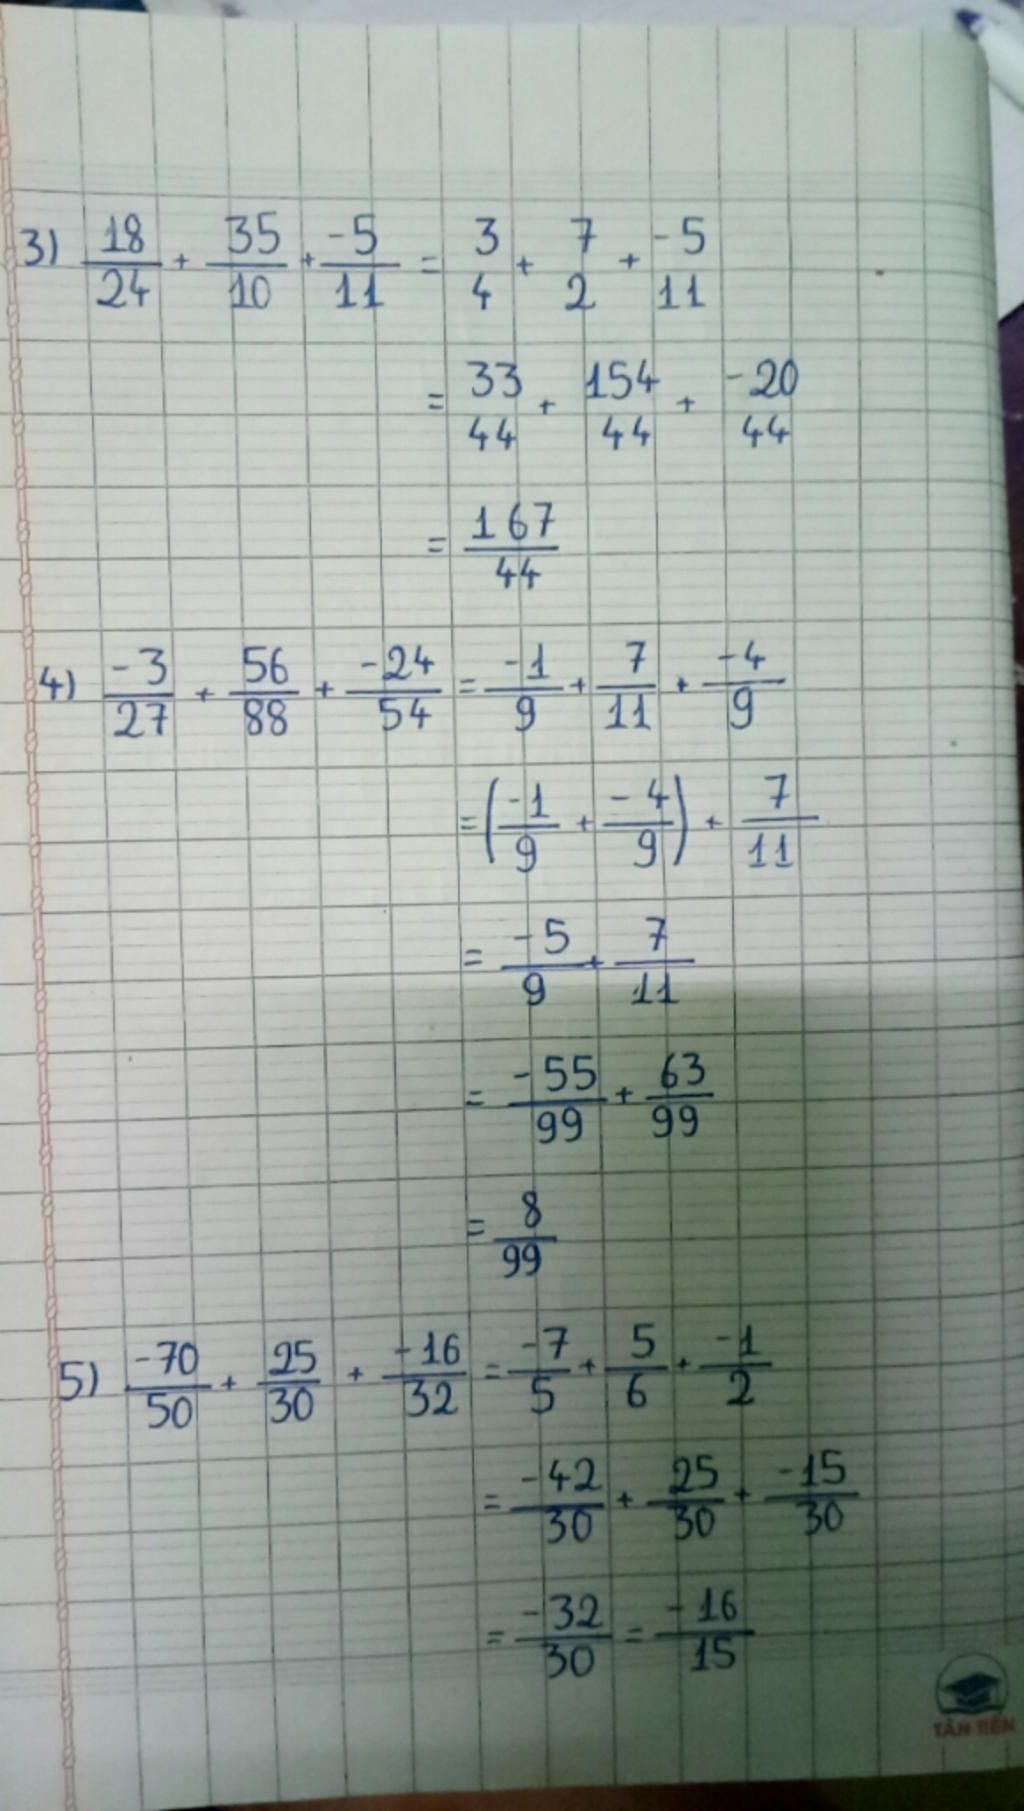 3) 18/24 + 35/10 + -5/11 = 3/4 + 7/2 + -5/11
= 33/44 + 154/44 + -20/44
= 167/44
4) -3/27 + 56/88 + -24/54 = -1/9 + 7/11 + -4/9
= (-1/9 + -4/9) + 7/11
= -5/9 + 7/11
= -55/99 + 63/99
= 8/99
5) -70/50 + 25/30 + -16/32 = -7/5 + 5/6 + -1/2
= -42/30 + 25/30 + -15/30
= -32/30 = -16/15
TÂN TIẾN